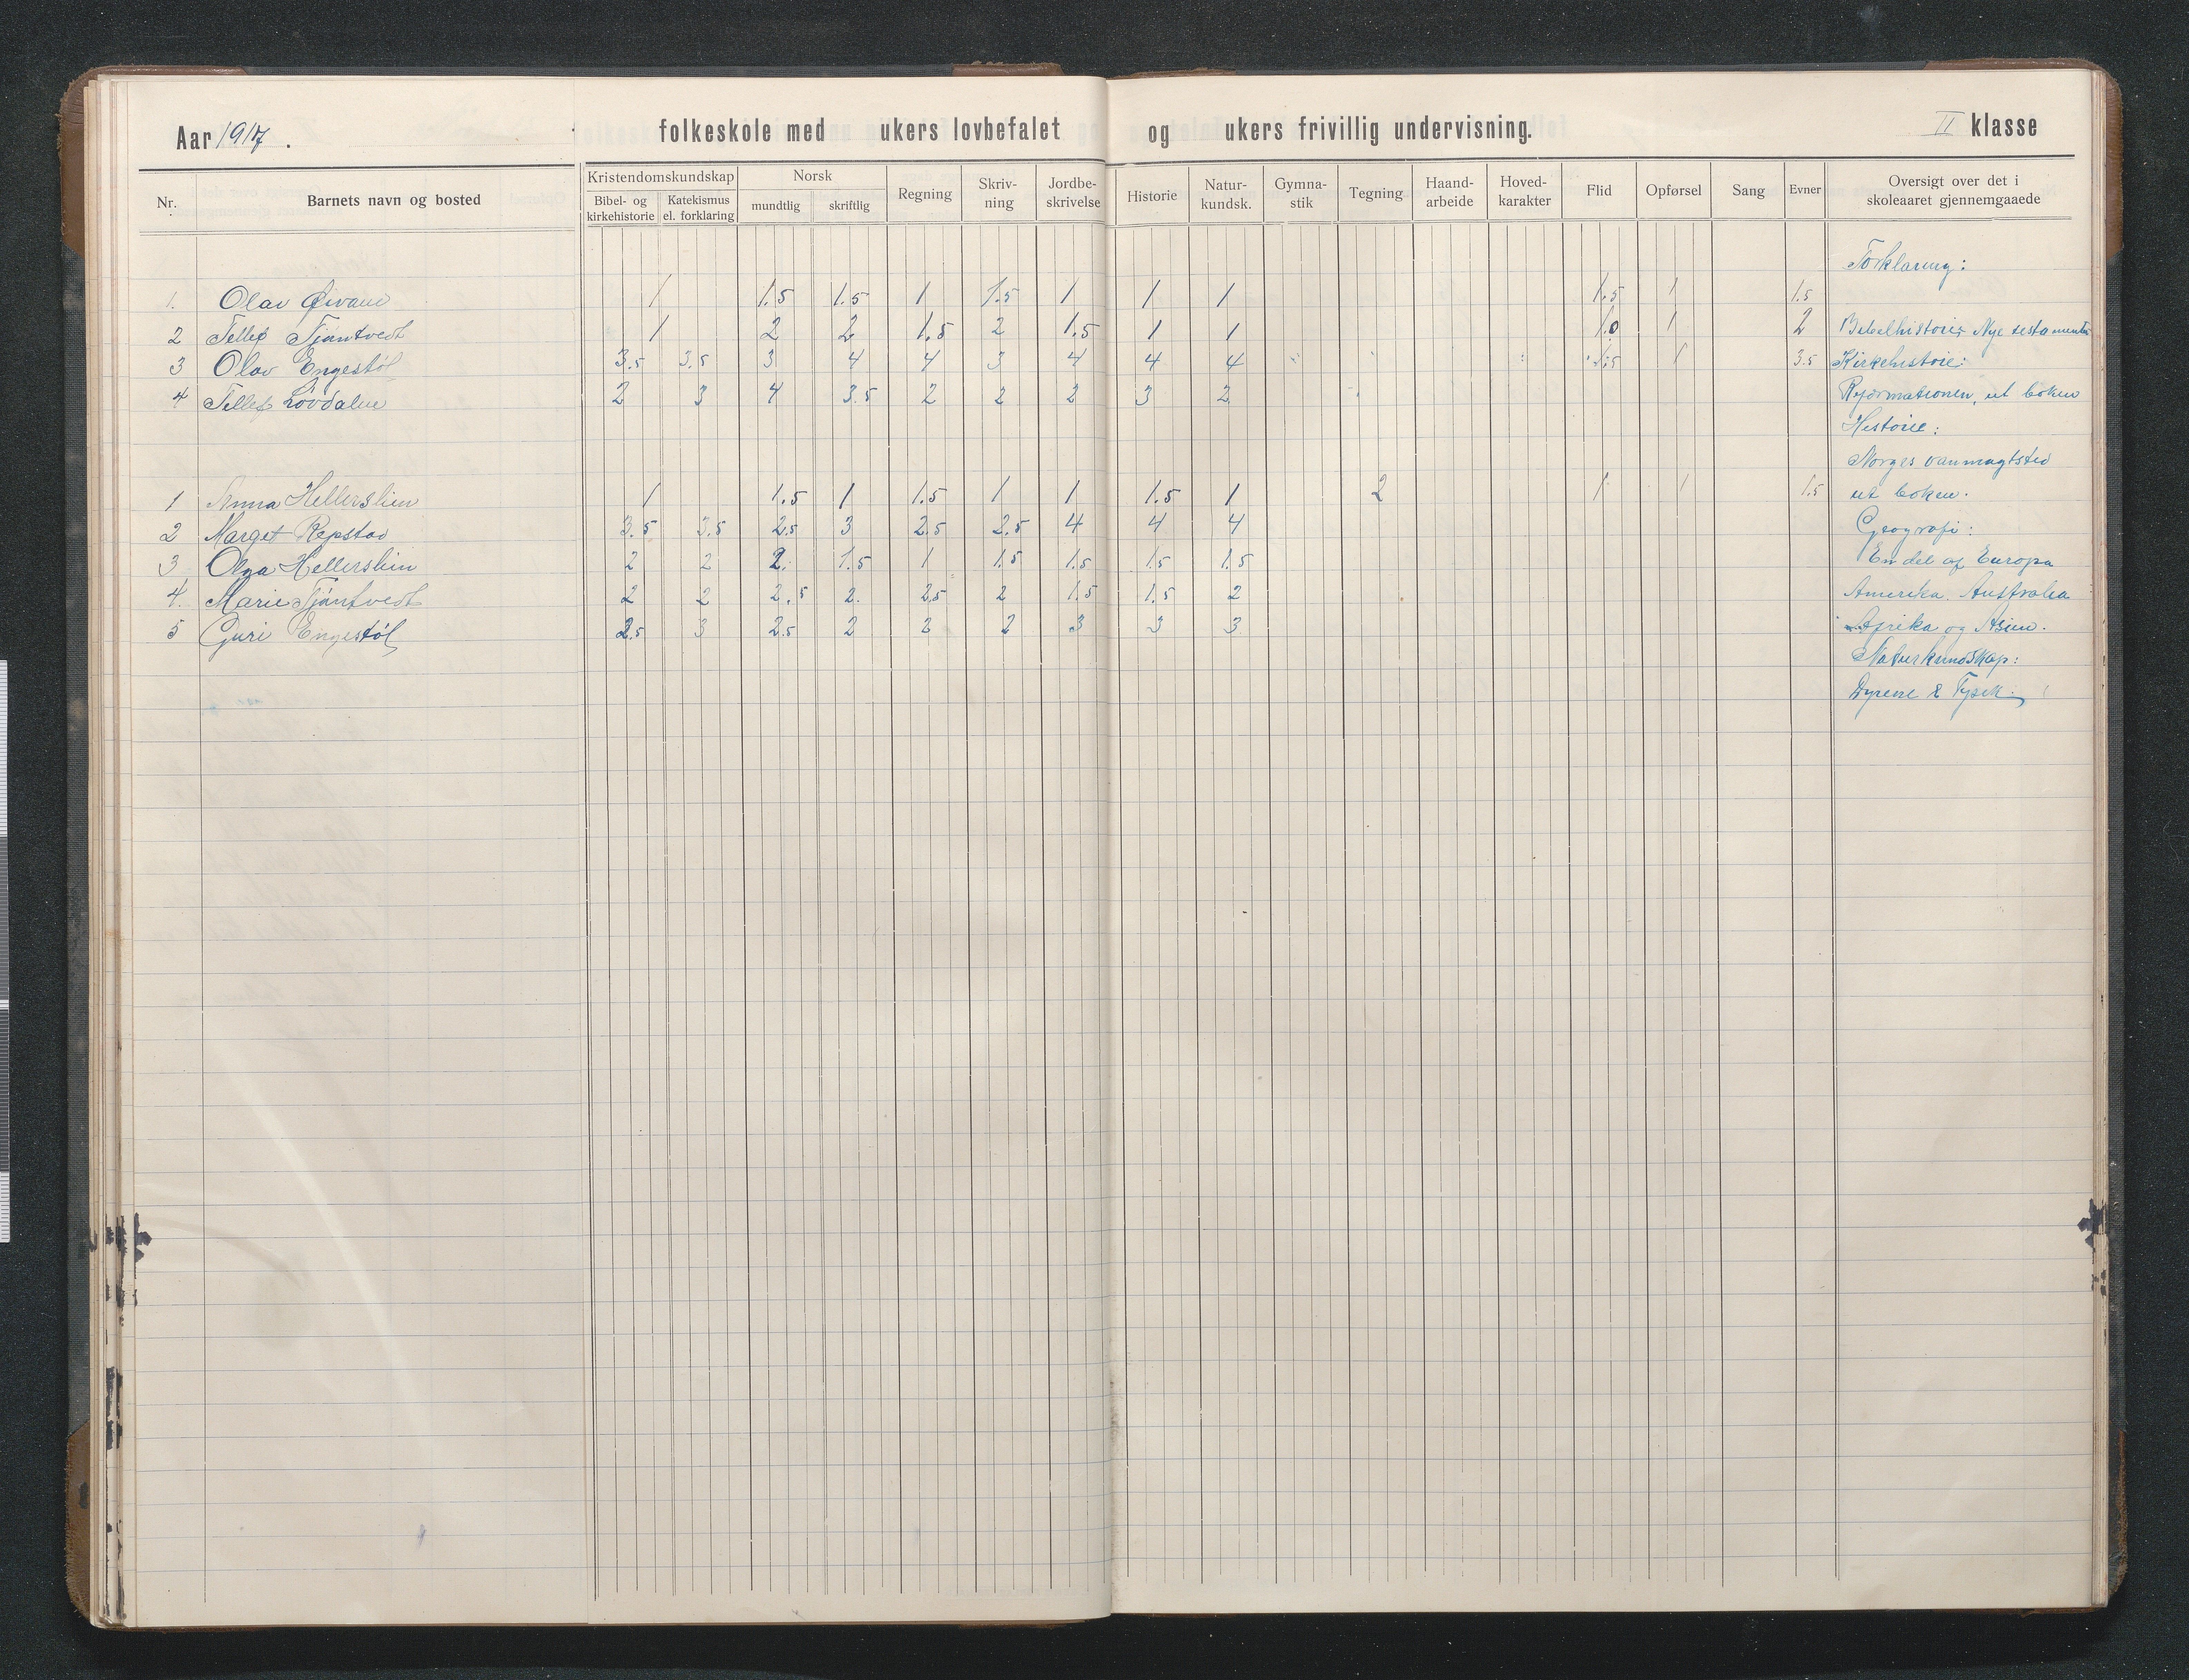 Aar 1917. folkeskole med ukers lovbefalet og ukers frivillig undervisning. II klasse
Nr. Barnets navn og bosted Kristendomskundskap Bibel- og kirkehistorie Katekismus el. forklaring Norsk mundtlig skriftlig Regning Skriv-ning Jordbe-skrivelse Historie Natur-kundsk. Gymna-stik Tegning Haand-arbeide Hoved-karakter Flid Opførsel Sang Evner Oversigt over det i skoleaaret gjennemgaaede
Forklaring:
1. Olav 1 1.5 1.5 1 1.5 1 1 1 1.5 1 1.5
2 Tellef Tjøntvedt 1 2 2 1.5 2 1.5 1 1 1.0 1 2 Bibelhistorie: Nye testamente
3 Olav Engestøl 3.5 3.5 3 4 4 3 4 4 4 1.5 1 3.5 Kirkehistorie:
4 Tellef Lövdalen 2 3 4 3.5 2 2 2 3 2 Reformationen, ut boken
Historie:
Norges vanmagtstid
1 Anna Hellerslien 1 1.5 1 1.5 1 1 1.5 1 2 1 1 1.5 ut boken.
2 Marget Repstad 3.5 3.5 2.5 3 2.5 2.5 4 4 4 Geografi:
3 Olga Hellerslien 2 2 2. 1.5 1 1.5 1.5 1.5 1.5 En del af Europa
4. Marie Tjøntvedt 2 2 2.5 2. 2.5 2 1.5 1.5 2 Amerika. Australia
5 Guri Engestøl 2.5 3 2.5 2 2 2 3 3 3 Afrika og Asien.
Naturkundskap:
Dyrene & Fysik.